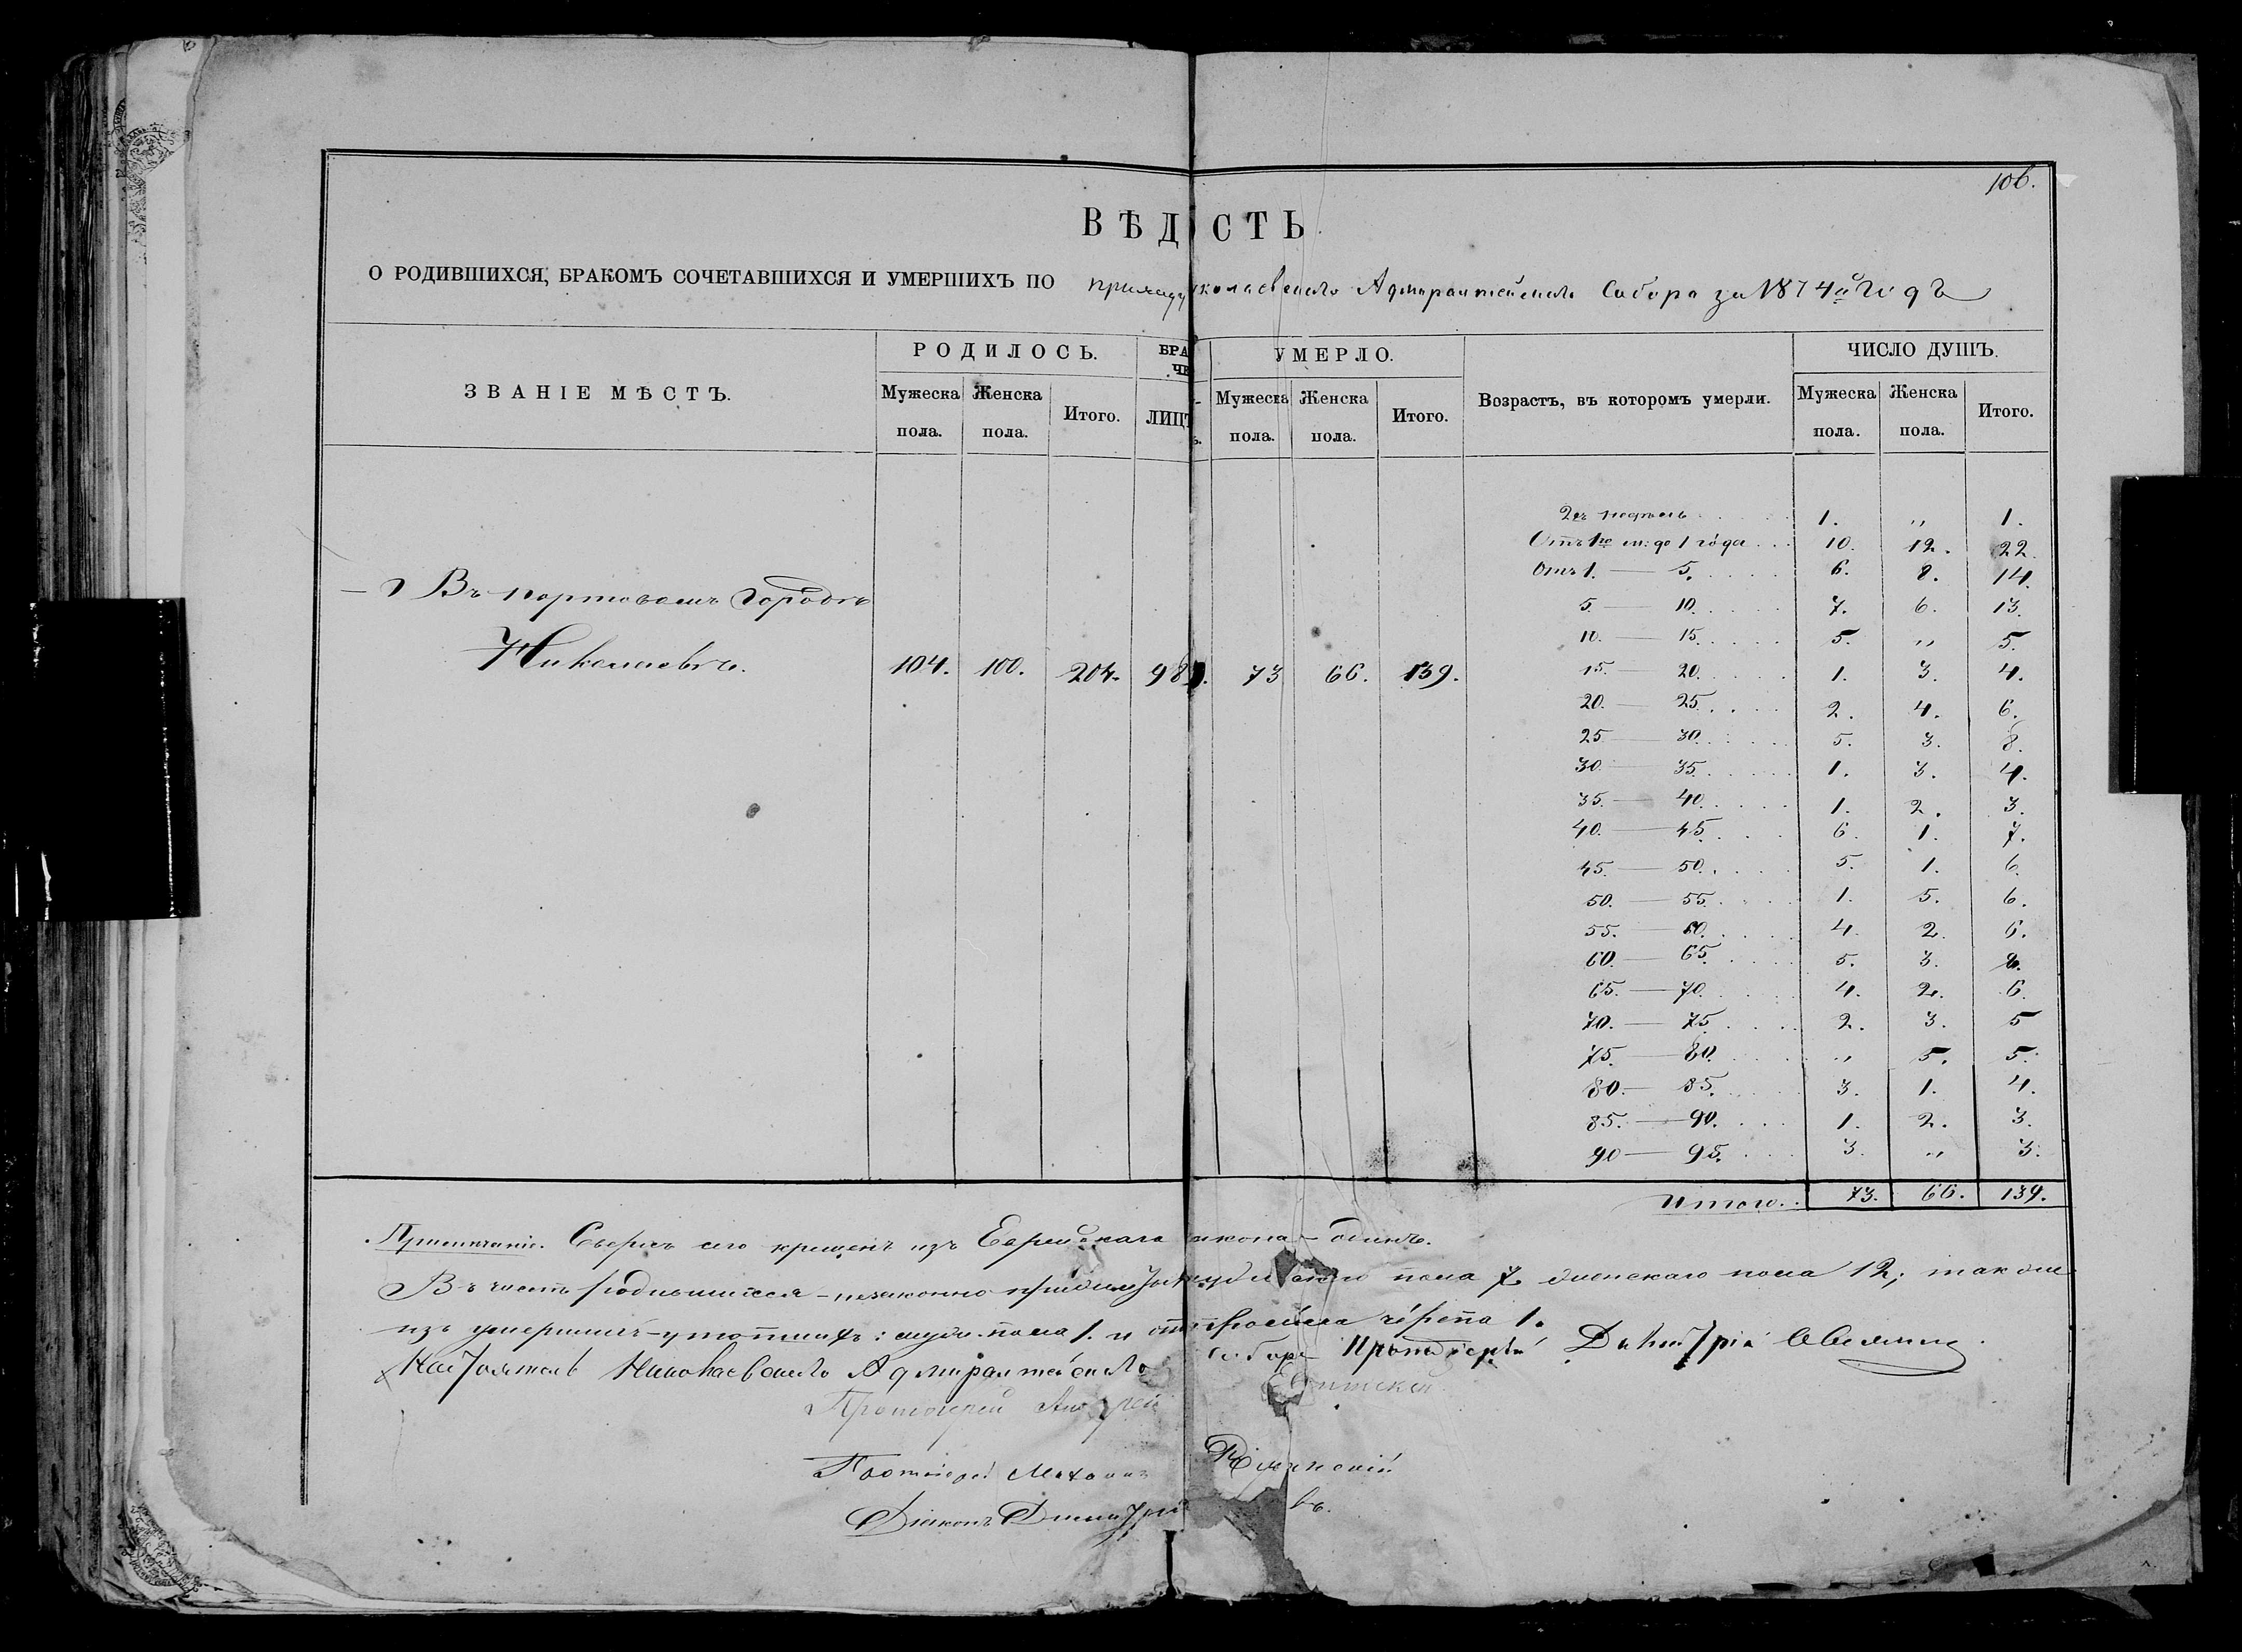 106.
ВѢД СТЬ
О РОДИВШИХСЯ, БРАКОМЪ СОЧЕТАВШИХСЯ И УМЕРШИХЪ ПО приходу колаевскаго Адмиралтейскаго Собора за 1874й годъ
ЗВАНІЕ МѢСТЪ. РОДИЛОСЬ. БРА ЧЕ УМЕРЛО. Возрастъ, въ которомъ умерли. ЧИСЛО ДУШЪ.
Мужеска пола. Женска пола. Итого. ЛИЦЪ Мужеска пола. Женска пола. Итого. Мужеска пола. Женска пола. Итого.
2хъ недѣль 1. „ 1.
Отъ 1го м: до 1 года 10. 12. 22.
Отъ 1. — 5. 6. 8. 14.
Въ портовомъ городѣ 5 — 10. 7. 6. 13.
10. — 15. 5. „ 5.
Николаевѣ. 104. 100. 204. 98 73 66. 139. 15. — 20. 1. 3. 4.
20. — 25. 2. 4. 6.
25 — 30. 5. 3. 8.
30. — 35. 1. 3. 4.
35. — 40. 1. 2. 3.
40. — 45. 6. 1. 7.
45. — 50. 5. 1. 6.
50. — 55. 1. 5. 6.
55. — 60. 4. 2. 6.
60. — 65. 5. 3. 8.
65. — 70. 4. 2. 6.
70. — 75. 2. 3. 5
75. — 80. „ 5. 5.
80. — 85. 3. 1. 4.
85. — 90. 1. 2. 3.
90 — 95. 3. „ 3.
Итого. 73. 66. 139.
Примѣчаніе. Сверхъ сего крещенъ изъ Еврейскаго закона — одинъ.
Въ числѣ родившихся — незаконно пола 7. женскаго пола 12; также
изъ умершихъ — утопшихъ: муж. пола 1. и черепа 1.
Настоятель Николаевскаго Адмиралтейскаго собора Протоіерей Димитрій
Протоіерей Андрей
Протоіерей
Діаконъ Димитрій въ.